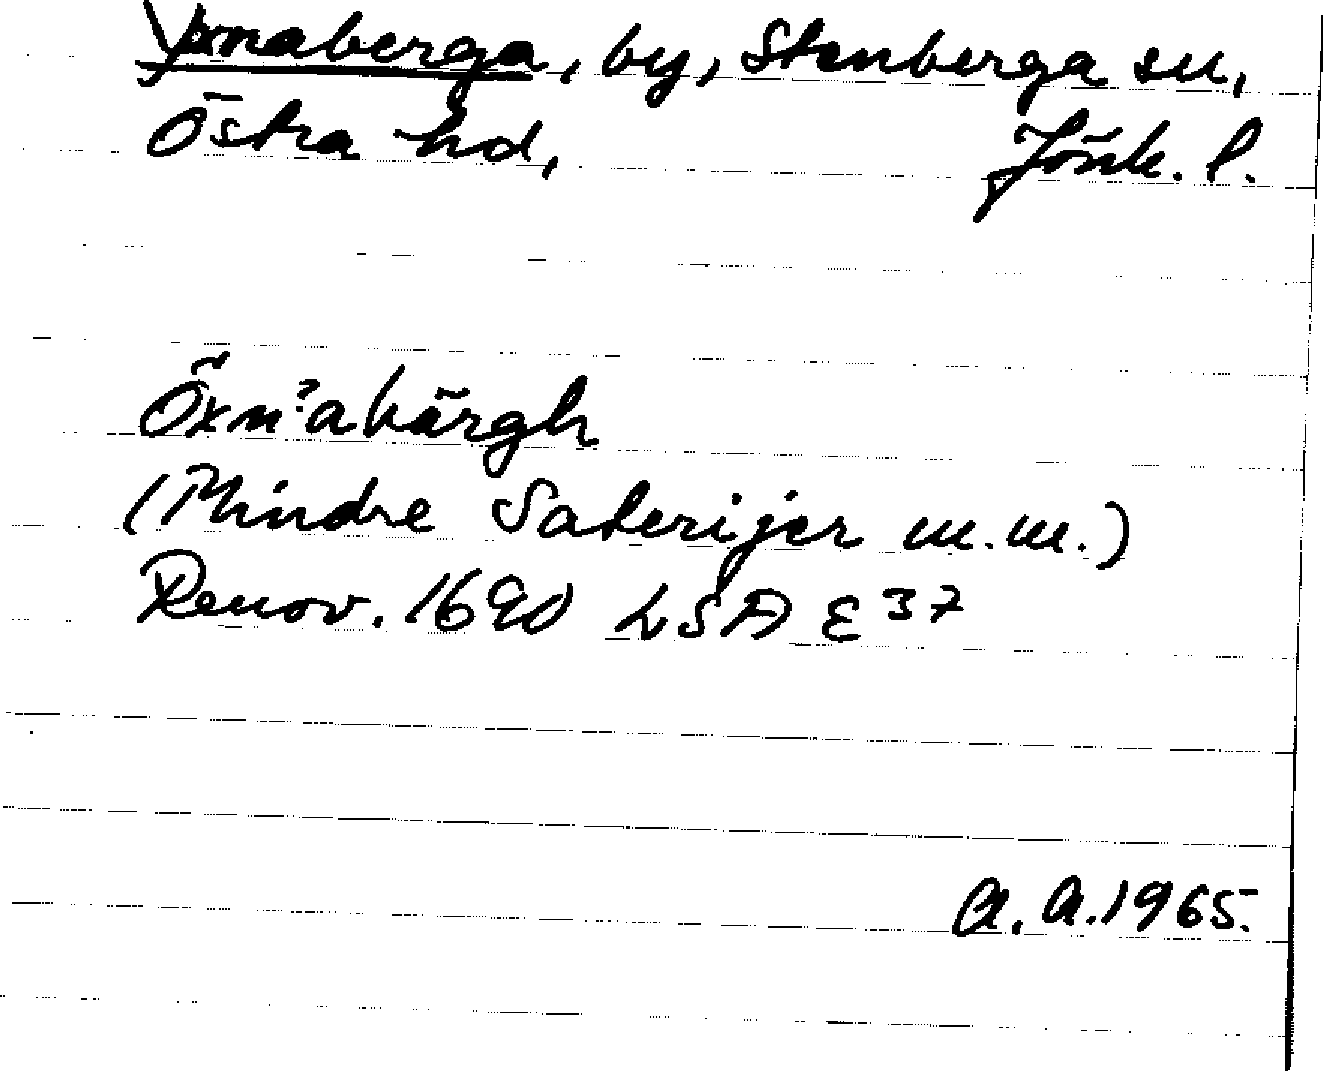 Yxnaberga, by, Stenberga sn,
Östra hd, Jönk. l.
Öxn?abärgh
(Mindre Saterijer m.m.)
Renov. 1690 LSA E 37
A. A. 1965.